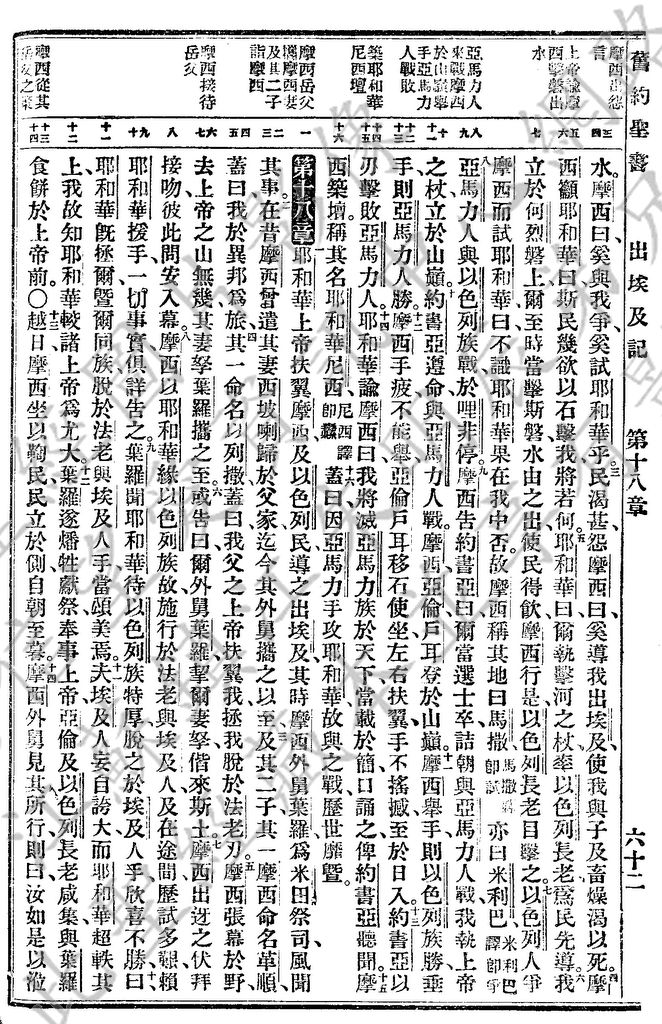 舊約聖書 出埃及記 第十八章 六十二
摩西出怨言
上帝諭摩西擊磐出水
亞馬力人來戰摩西於山巔舉手亞馬力人戰敗
築耶和華尼西壇
摩西岳父攜摩西妻及其二子詣摩西
摩西接待岳父
摩西從其岳父之策
水、摩西曰、奚與我爭、奚試耶和華乎、三民渴甚、怨摩西曰、奚導我出埃及、使我與子及畜燥渴以死、四摩
西籲耶和華曰、斯民幾欲以石擊我、將若何、五耶和華曰、爾執擊河之杖、率以色列長老、為民先導、六我
立於何烈磐上、爾至時、當擊斯磐、水由之出、使民得飲、摩西行是、以色列長老目擊之、七以色列人爭
摩西而試耶和華曰、不識耶和華果在我中否、故摩西稱其地曰馬撒、馬撒譯即試亦曰米利巴、米利巴譯即爭
八亞馬力人與以色列族戰於哩非停、九摩西告約書亞曰、爾當選士卒、詰朝與亞馬力人戰、我執上帝
之杖、立於山巔、十約書亞遵命、與亞馬力人戰、摩西亞倫戶耳登於山巔、十一摩西舉手、則以色列族勝、垂
手則亞馬力人勝、十二摩西手疲不能舉、亞倫戶耳移石使坐、左右扶翼、手不搖撼、至於日入、十三約書亞以
刃擊敗亞馬力人、十四耶和華諭摩西曰、我將滅亞馬力族於天下、當載於簡、口誦之、俾約書亞聽聞、十五摩
西築壇、稱其名耶和華尼西、尼西譯即纛十六蓋曰、因亞馬力手攻耶和華、故與之戰、歷世靡暨。
第十八章 一耶和華上帝扶翼摩西、及以色列民、導之出埃及、其時摩西外舅葉羅、為米田祭司、風聞
其事、二在昔摩西曾遣其妻西坡喇歸於父家、迄今其外舅攜之以至、三及其二子、其一摩西命名革順、
蓋曰、我於異邦為旅、四其一命名以列撒、蓋曰、我父之上帝扶翼我、拯我脫於法老刃、五摩西張幕於野、
去上帝之山無幾、其妻孥、葉羅攜之至、六或告曰、爾外舅葉羅、挈爾妻孥偕來斯土、七摩西出迓之、伏拜
接吻、彼此問安、入幕、八摩西以耶和華緣以色列族故、施行於法老與埃及人、及在途間歷試多艱、賴
耶和華援手、一切事實、俱詳告之、九葉羅聞耶和華待以色列族特厚、脫之於埃及人手、欣喜不勝、十曰、
耶和華旣拯爾、曁爾同族、脫於法老與埃及人手、當頌美焉、十一夫埃及人妄自誇大、而耶和華超軼其
上、我故知耶和華較諸上帝為尤大、十二葉羅遂燔牲獻祭、奉事上帝、亞倫及以色列長老咸集、與葉羅
食餅於上帝前、〇十三越日、摩西坐以鞫民、民立於側、自朝至暮、十四摩西外舅見其所行、則曰、汝如是以涖